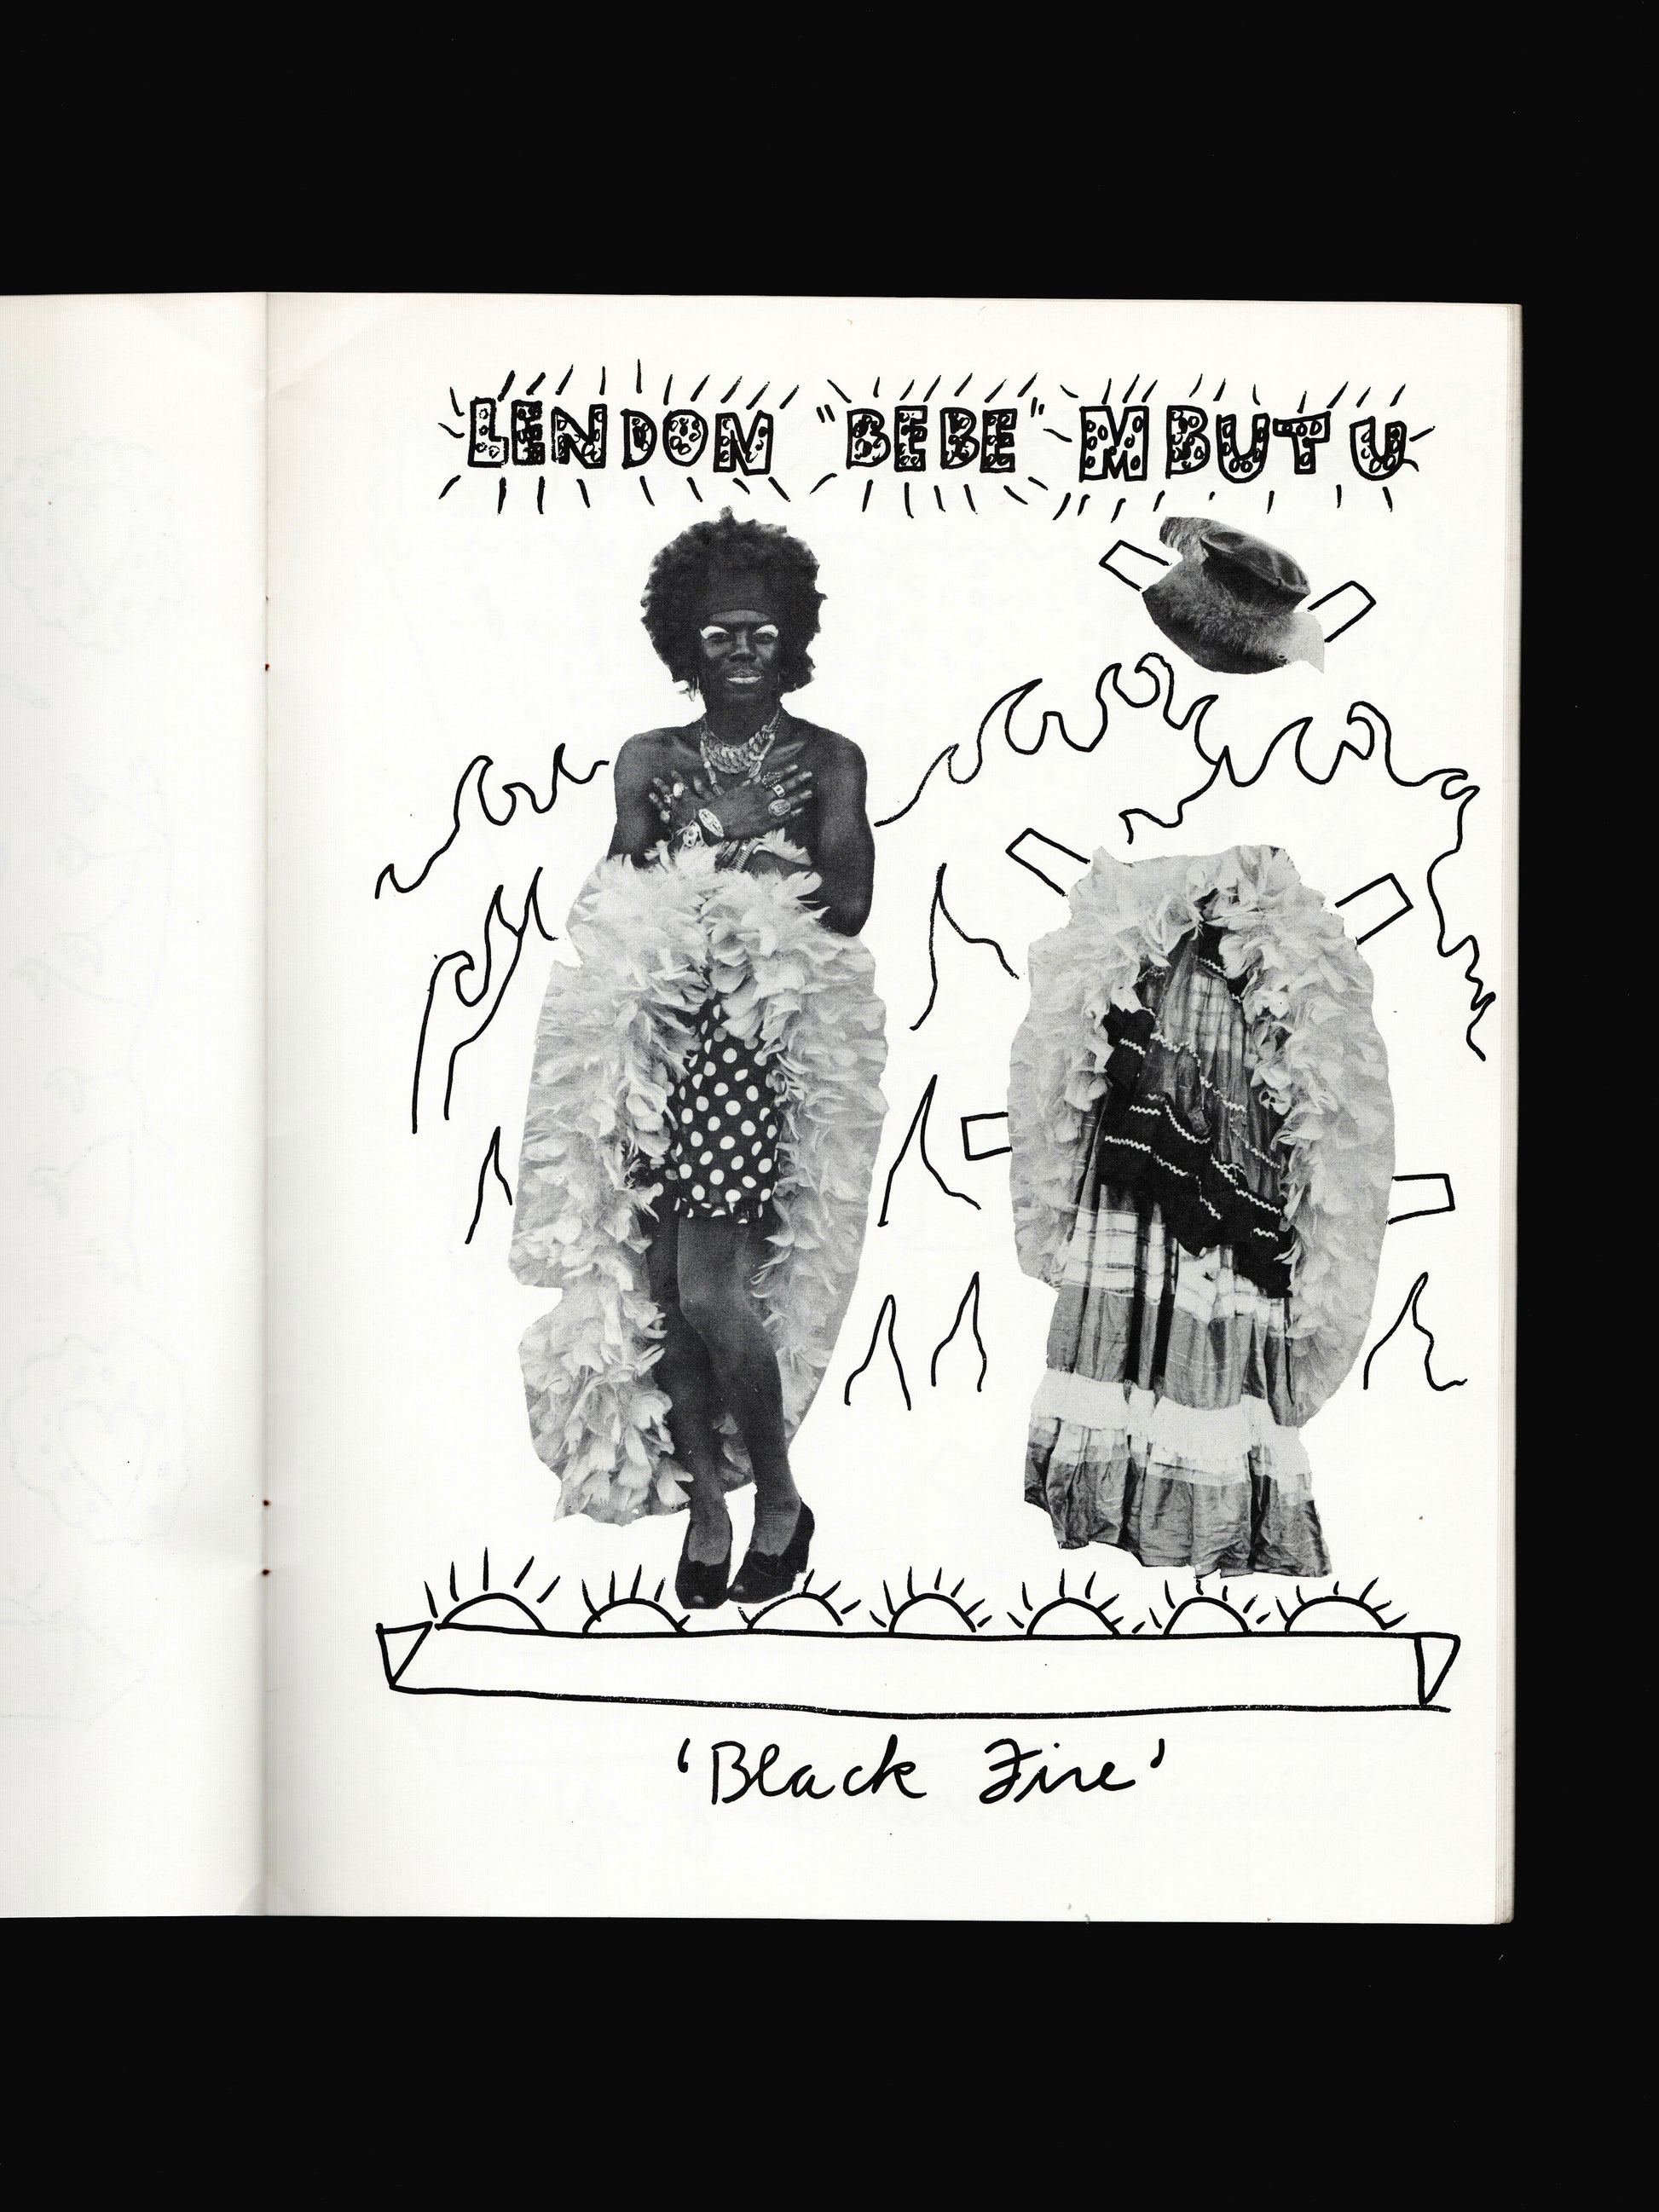 LENDOM "BEBE" MBUTU
'Black Fire'